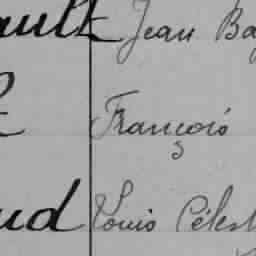 ault Jean Ba
François
ud Louis Célest